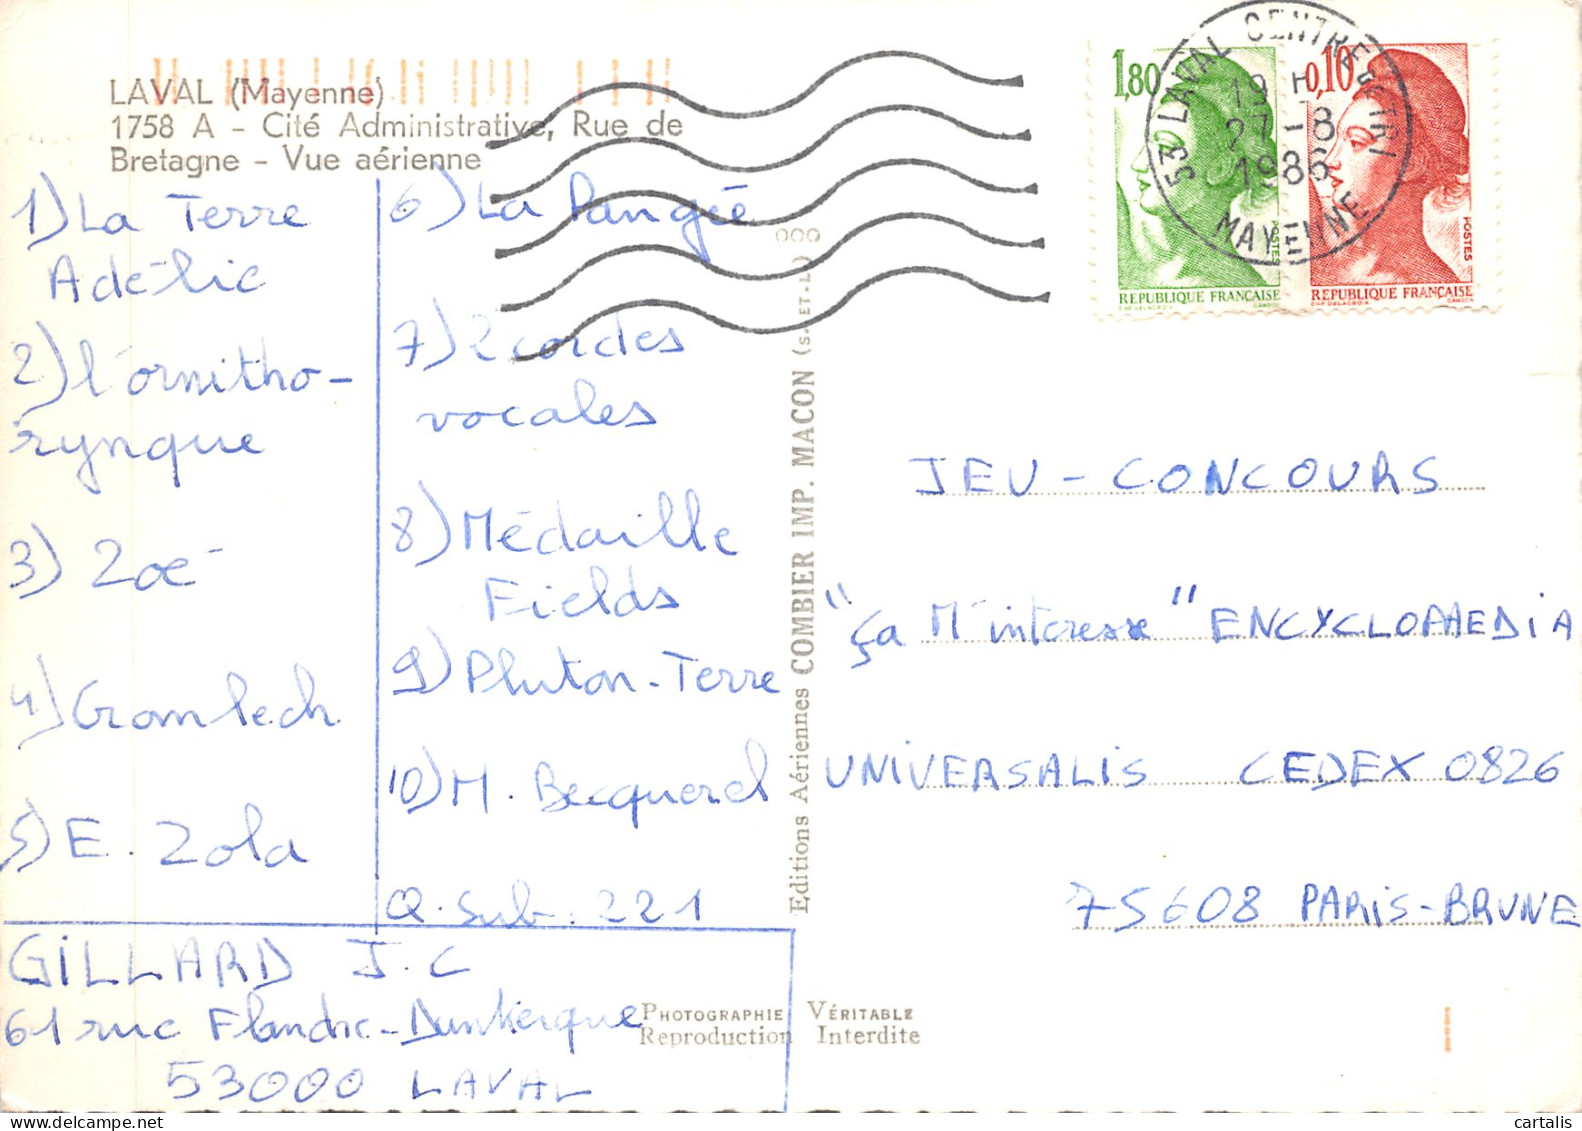 LAVAL (Mayenne)
1758 A - Cité Administrative, Rue de
Bretagne - Vue aérienne
1) La Terre
Adélie
2) l'ornitho-
rynque
3) Zoé
4) Cromlech
5) E. Zola
6) La Pangée
7) 2 cordes
vocales
8) Médaille
Fields
9) Pluton-Terre
10) M. Becquerel
Q. Sub. 221
GILLARD J.C
61 rue Flandre-Dunkerque
53000 LAVAL
Editions Aériennes COMBIER IMP. MACON (S.-ET-L.)
PHOTOGRAPHIE VÉRITABLE
Reproduction Interdite
1,80
POSTES
REPUBLIQUE FRANÇAISE
D'AP DELACROIX GANDON
0,10
POSTES
REPUBLIQUE FRANÇAISE
D'AP DELACROIX GANDON
53 LAVAL CENTRE
19 H
27-8
1986
MAYENNE
JEU-CONCOURS
"ça M'intéresse" ENCYCLOPAEDIA
UNIVERSALIS CEDEX 0826
75608 PARIS-BRUNE
cartalis